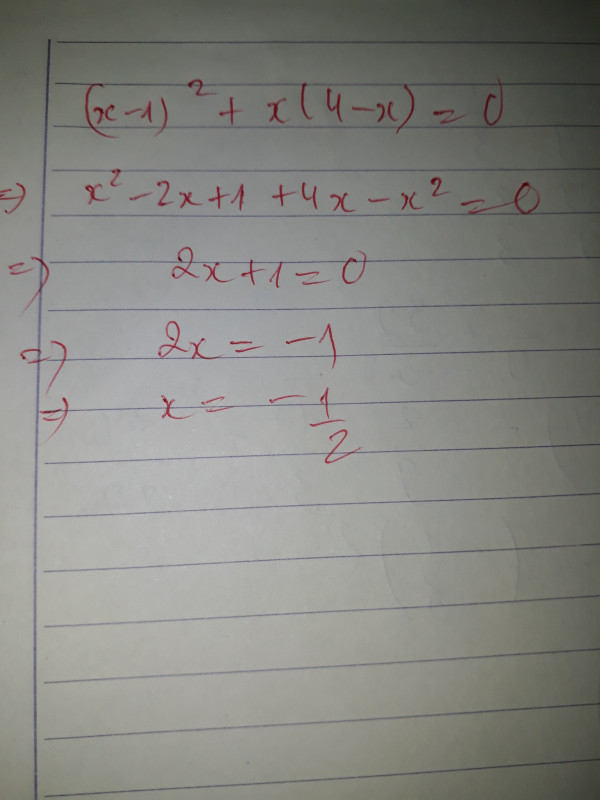 (x-1)² + x(4-x) = 0
=) x² - 2x + 1 + 4x - x² = 0
=) 2x + 1 = 0
=) 2x = -1
=) x = - 1/2